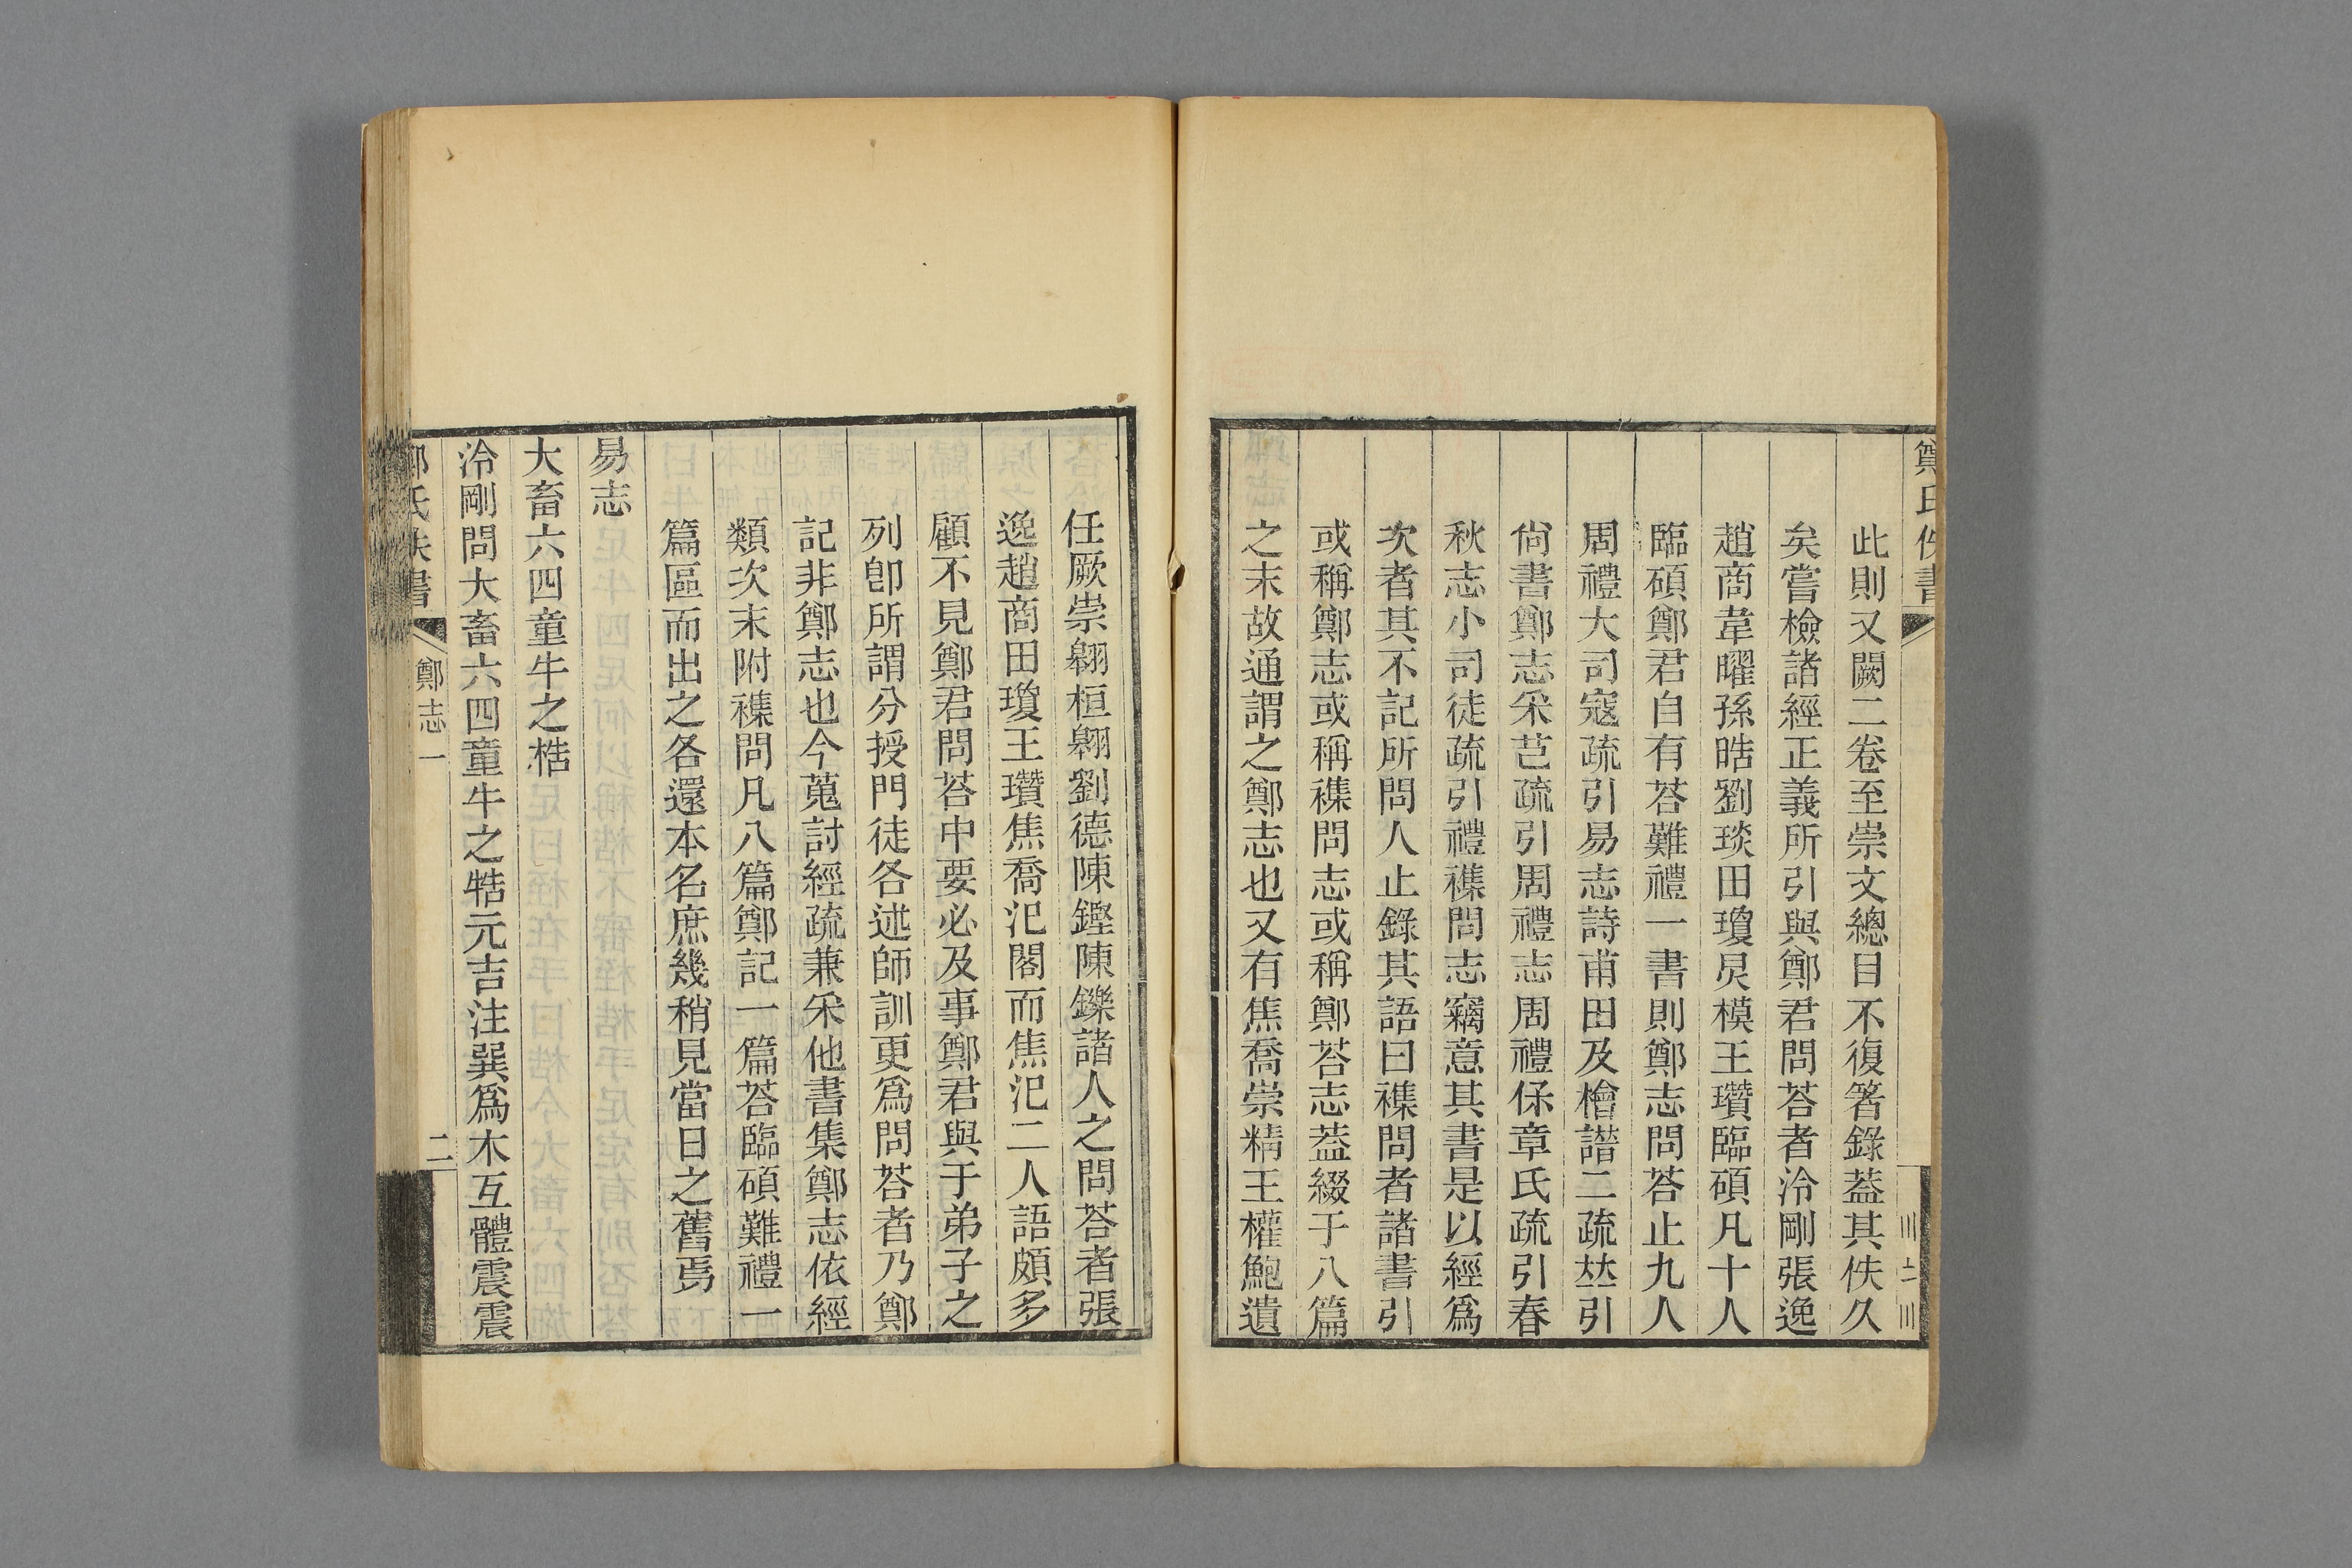 鄭氏佚書
此則又闕二卷至崇文總目不復箸錄葢其佚久
矣嘗檢諸經正義所引與鄭君問荅者泠剛張逸
趙商韋曜孫晧劉琰田瓊炅模王瓚臨碩凡十人
臨碩鄭君自有荅難禮一書則鄭志問荅止九人
周禮大司寇疏引易志詩甫田及檜譜二疏𠀤引
尙書鄭志采芑疏引周禮志周禮保章氏疏引春
秋志小司徒疏引禮襍問志竊意其書是以經爲
次者其不記所問人止錄其語曰襍問者諸書引
或稱鄭志或稱襍問志或稱鄭荅志葢綴于八篇
之末故通謂之鄭志也又有焦喬崇精王權鮑遺
任厥崇翱桓翱劉德陳鏗陳鑠諸人之問荅者張
逸趙商田瓊王瓚焦喬氾閣而焦氾二人語頗多
顧不見鄭君問荅中要必及事鄭君與于弟子之
列卽所謂分授門徒各述師訓更爲問荅者乃鄭
記非鄭志也今蒐討經疏兼采他書集鄭志依經
類次末附襍問凡八篇鄭記一篇荅臨碩難禮一
篇區而出之各還本名庶幾稍見當日之舊焉
易志
大畜六四童牛之梏
泠剛問大畜六四童牛之牿元吉注巽爲木互體震震
鄭氏佚書
鄭志一
二